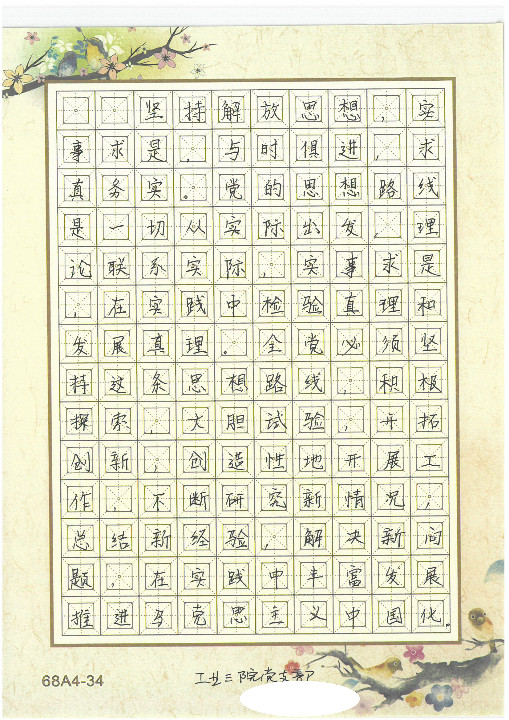 坚持解放思想，实
事求是，与时俱进，求
真务实。党的思想路线
是一切从实际出发，理
论联系实际，实事求是
，在实践中检验真理和
发展真理。全党必须坚
持这条思想路线，积极
探索，大胆试验，开拓
创新，创造性地开展工
作，不断研究新情况，
总结新经验，解决新问
题，在实践中丰富发展
推进马克思主义中国化。
68A4-34
工业三院党支部